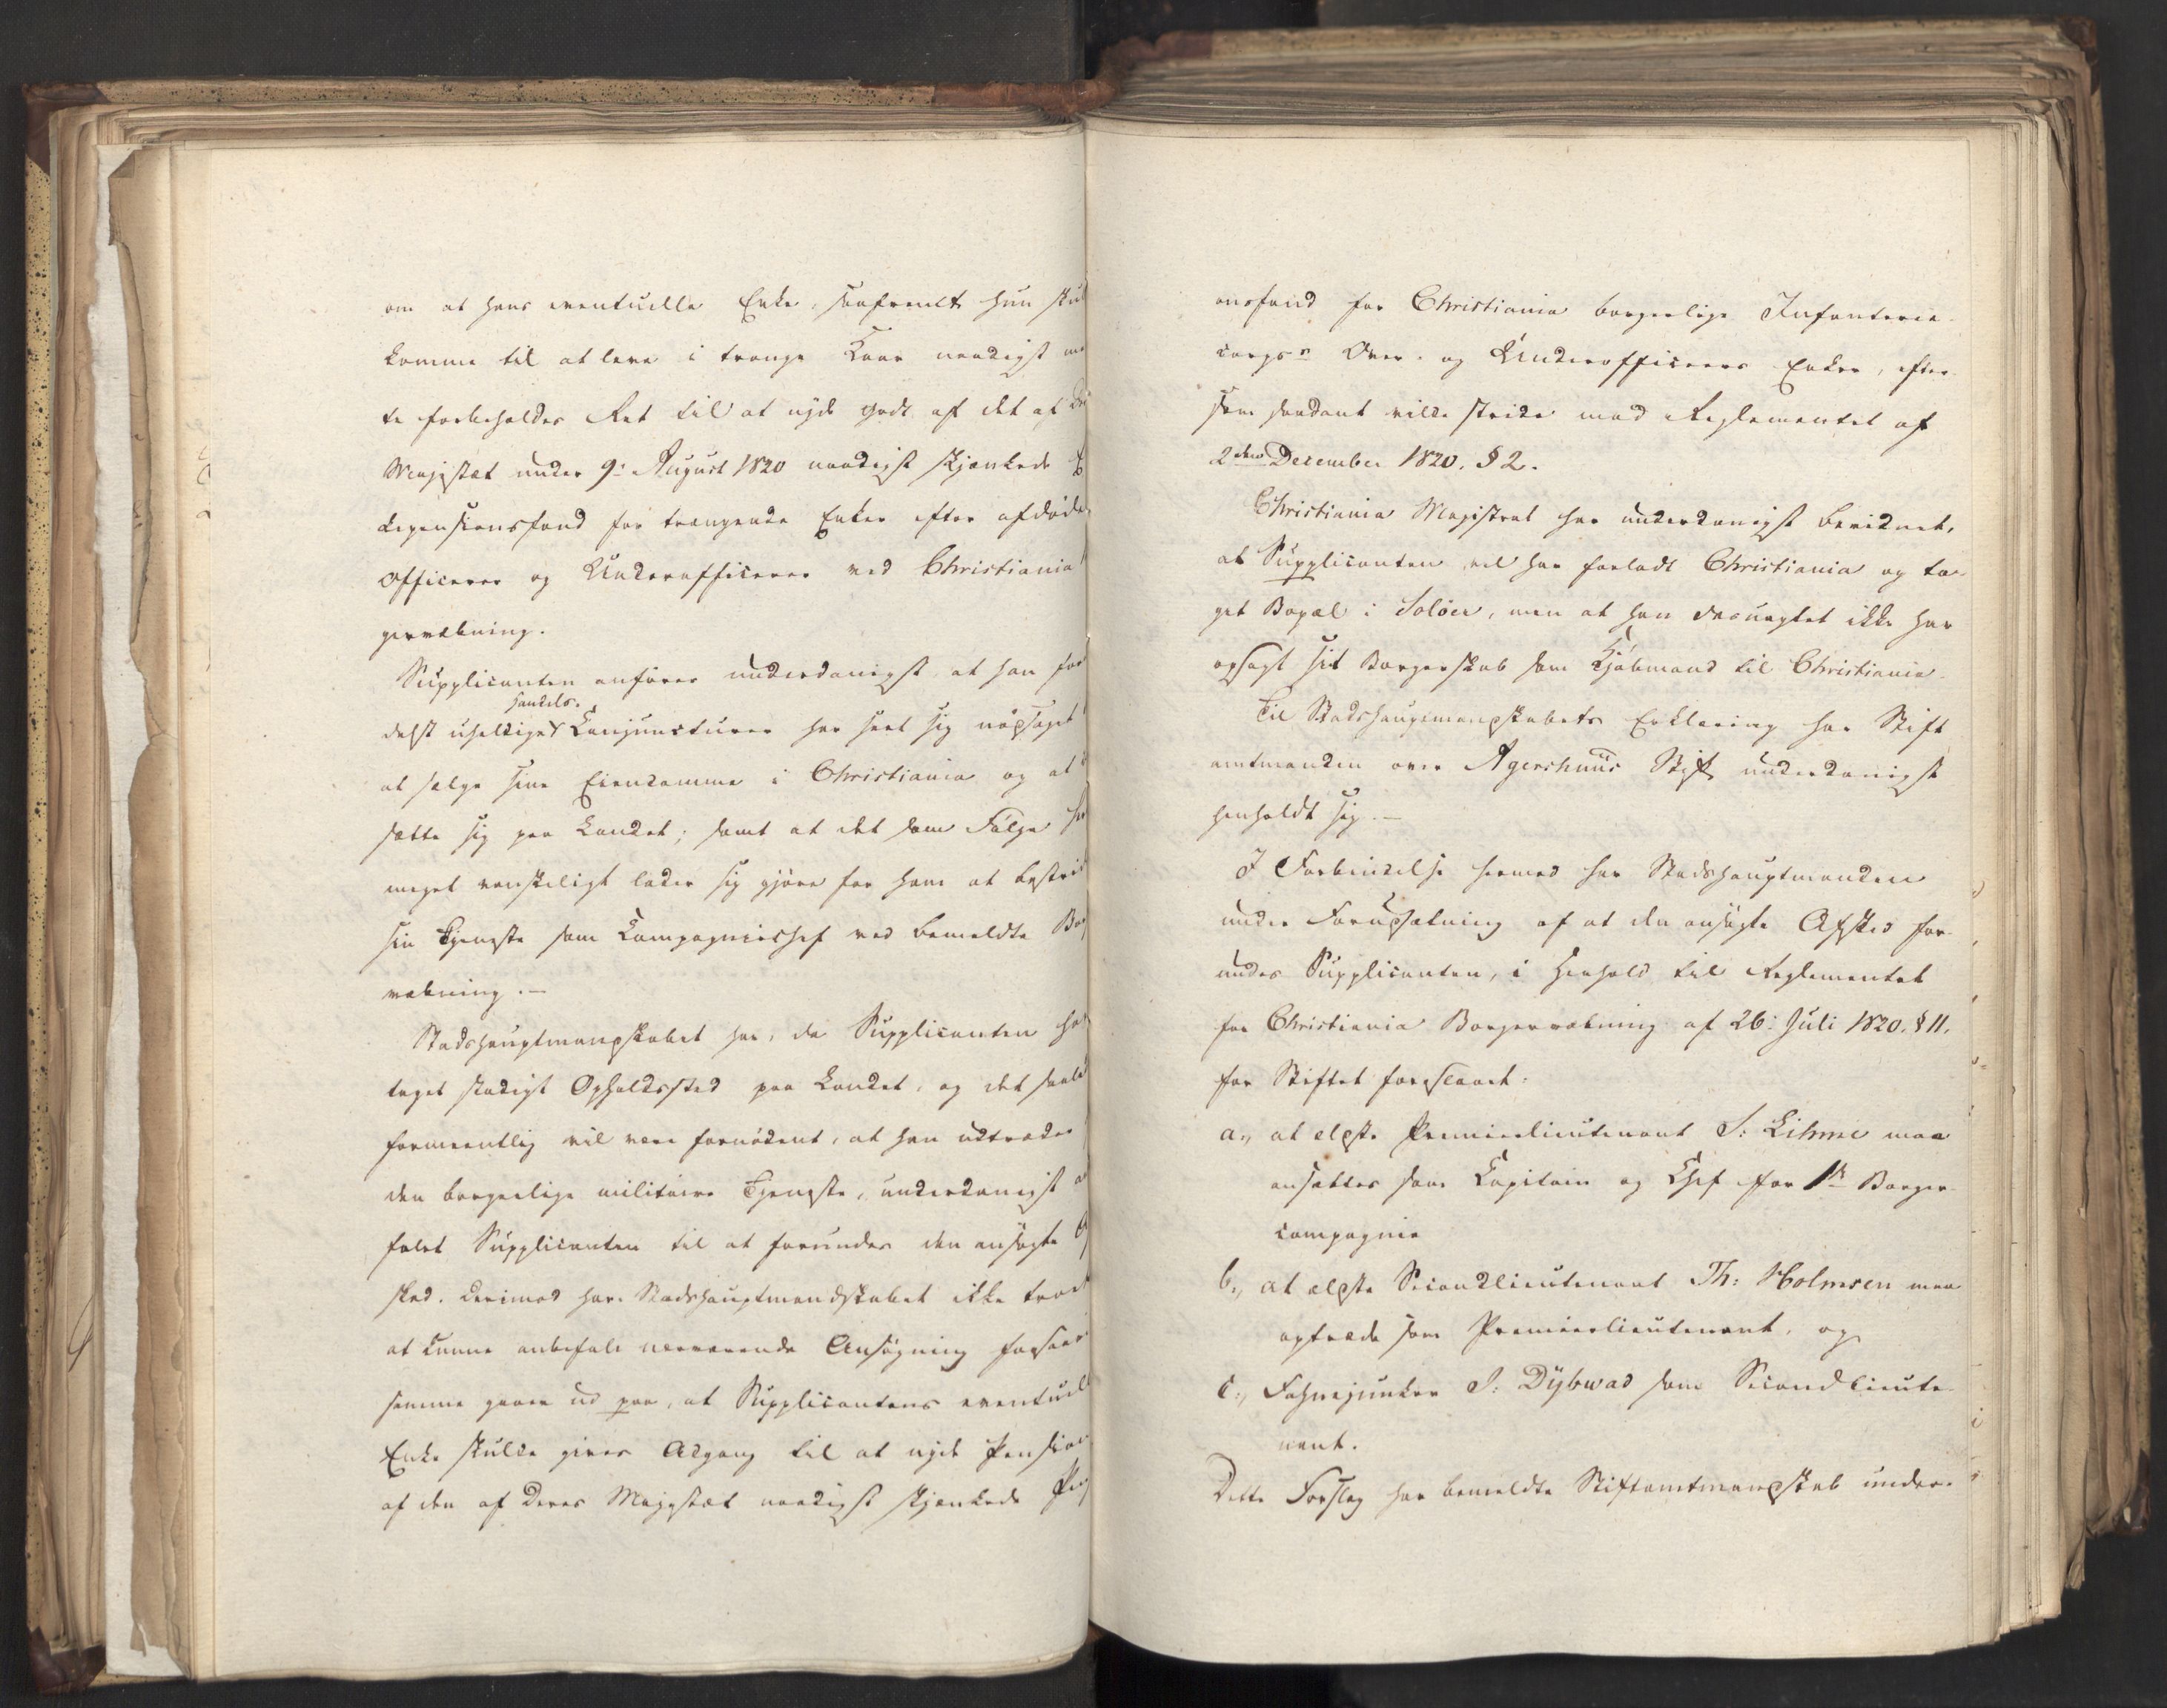 om at hans eventuelle Enke, saafremt hun skul
komme til at leve i trange Kaar naadigst maa
te forbeholdes Ret til at nyde godt af det af De
Majestæt under 9: August 1820 naadigst skjænkede
kepensionsfond for trængende Enker efter afdøde
Officerer og Underofficerer ved Christiania
gervæbning.
Supplicanten anfører underdanigst at han for
handels.
delst uheldige Conjuncturer har seet sig nødsaget
at sælge sine Eiendomme i Christiania og at
sætte sig paa Landet; samt at det som Følge he
meget vanskeligt lader sig gjøre for ham at bestrid
sin Tjeneste som Compagniechef ved bemeldte Bor
væbning.—
Stadshauptmandskabet har, da Supplicanten har
taget stadigt Opholdssted paa Landet, og det saale
formeentlig vil være fornødent, at han udtræder
den borgerlige militaire Tjeneste, underdanigst a
falet Supplicanten til at forundes den ansøgte Af
sked. Derimod har Stadshauptmandskabet ikke troet
at kunne anbefale nærværende Ansøgning forsaav
samme gaaer ud paa, at Supplicantens eventuel
Enke skulde gives Adgang til at nyde Pension
af den af Deres Majestæt naadigst skjænkede Pen
onsfond for Christiania borgerlige Infanterie
corps's Over- og Underofficerers Enker, efter
som saadant vilde stride mod Reglementet af
2den December 1820. § 2.
Christiania Magistrat har underdanigst bevidnet,
at Supplicanten vel har forladt Christiania og ta-
get Bopæl i Soløer, men at han desuagtet ikke har
opsagt sit Borgerskab som Kjøbmand til Christiania.
Til Stadshauptmandskabets Erklæring har Stift
amtmanden over Agershuus Stift underdanigst
henholdt sig.—
I Forbindelse hermed har Stadshauptmanden
under Forudsætning af at den ansøgte Afsked for-
undes Supplicanten, i Henhold til Reglementet
for Christiania Borgervæbning af 26: Juli 1820. § 11.
for Stiftet foreslaaet:
a., at ælste Premierlieutenant S: Lihme maa
ansættes som Capitain og Chef for 1ste Borger-
compagnie
b., at ælste Secondlieutenant Th: Holmsen maa
optræde som Premierlieutenant, og
c., Fahnejunker J: Dybwad som Secondlieute-
nant.
Dette Forslag har bemeldte Stiftamtmandskab under-